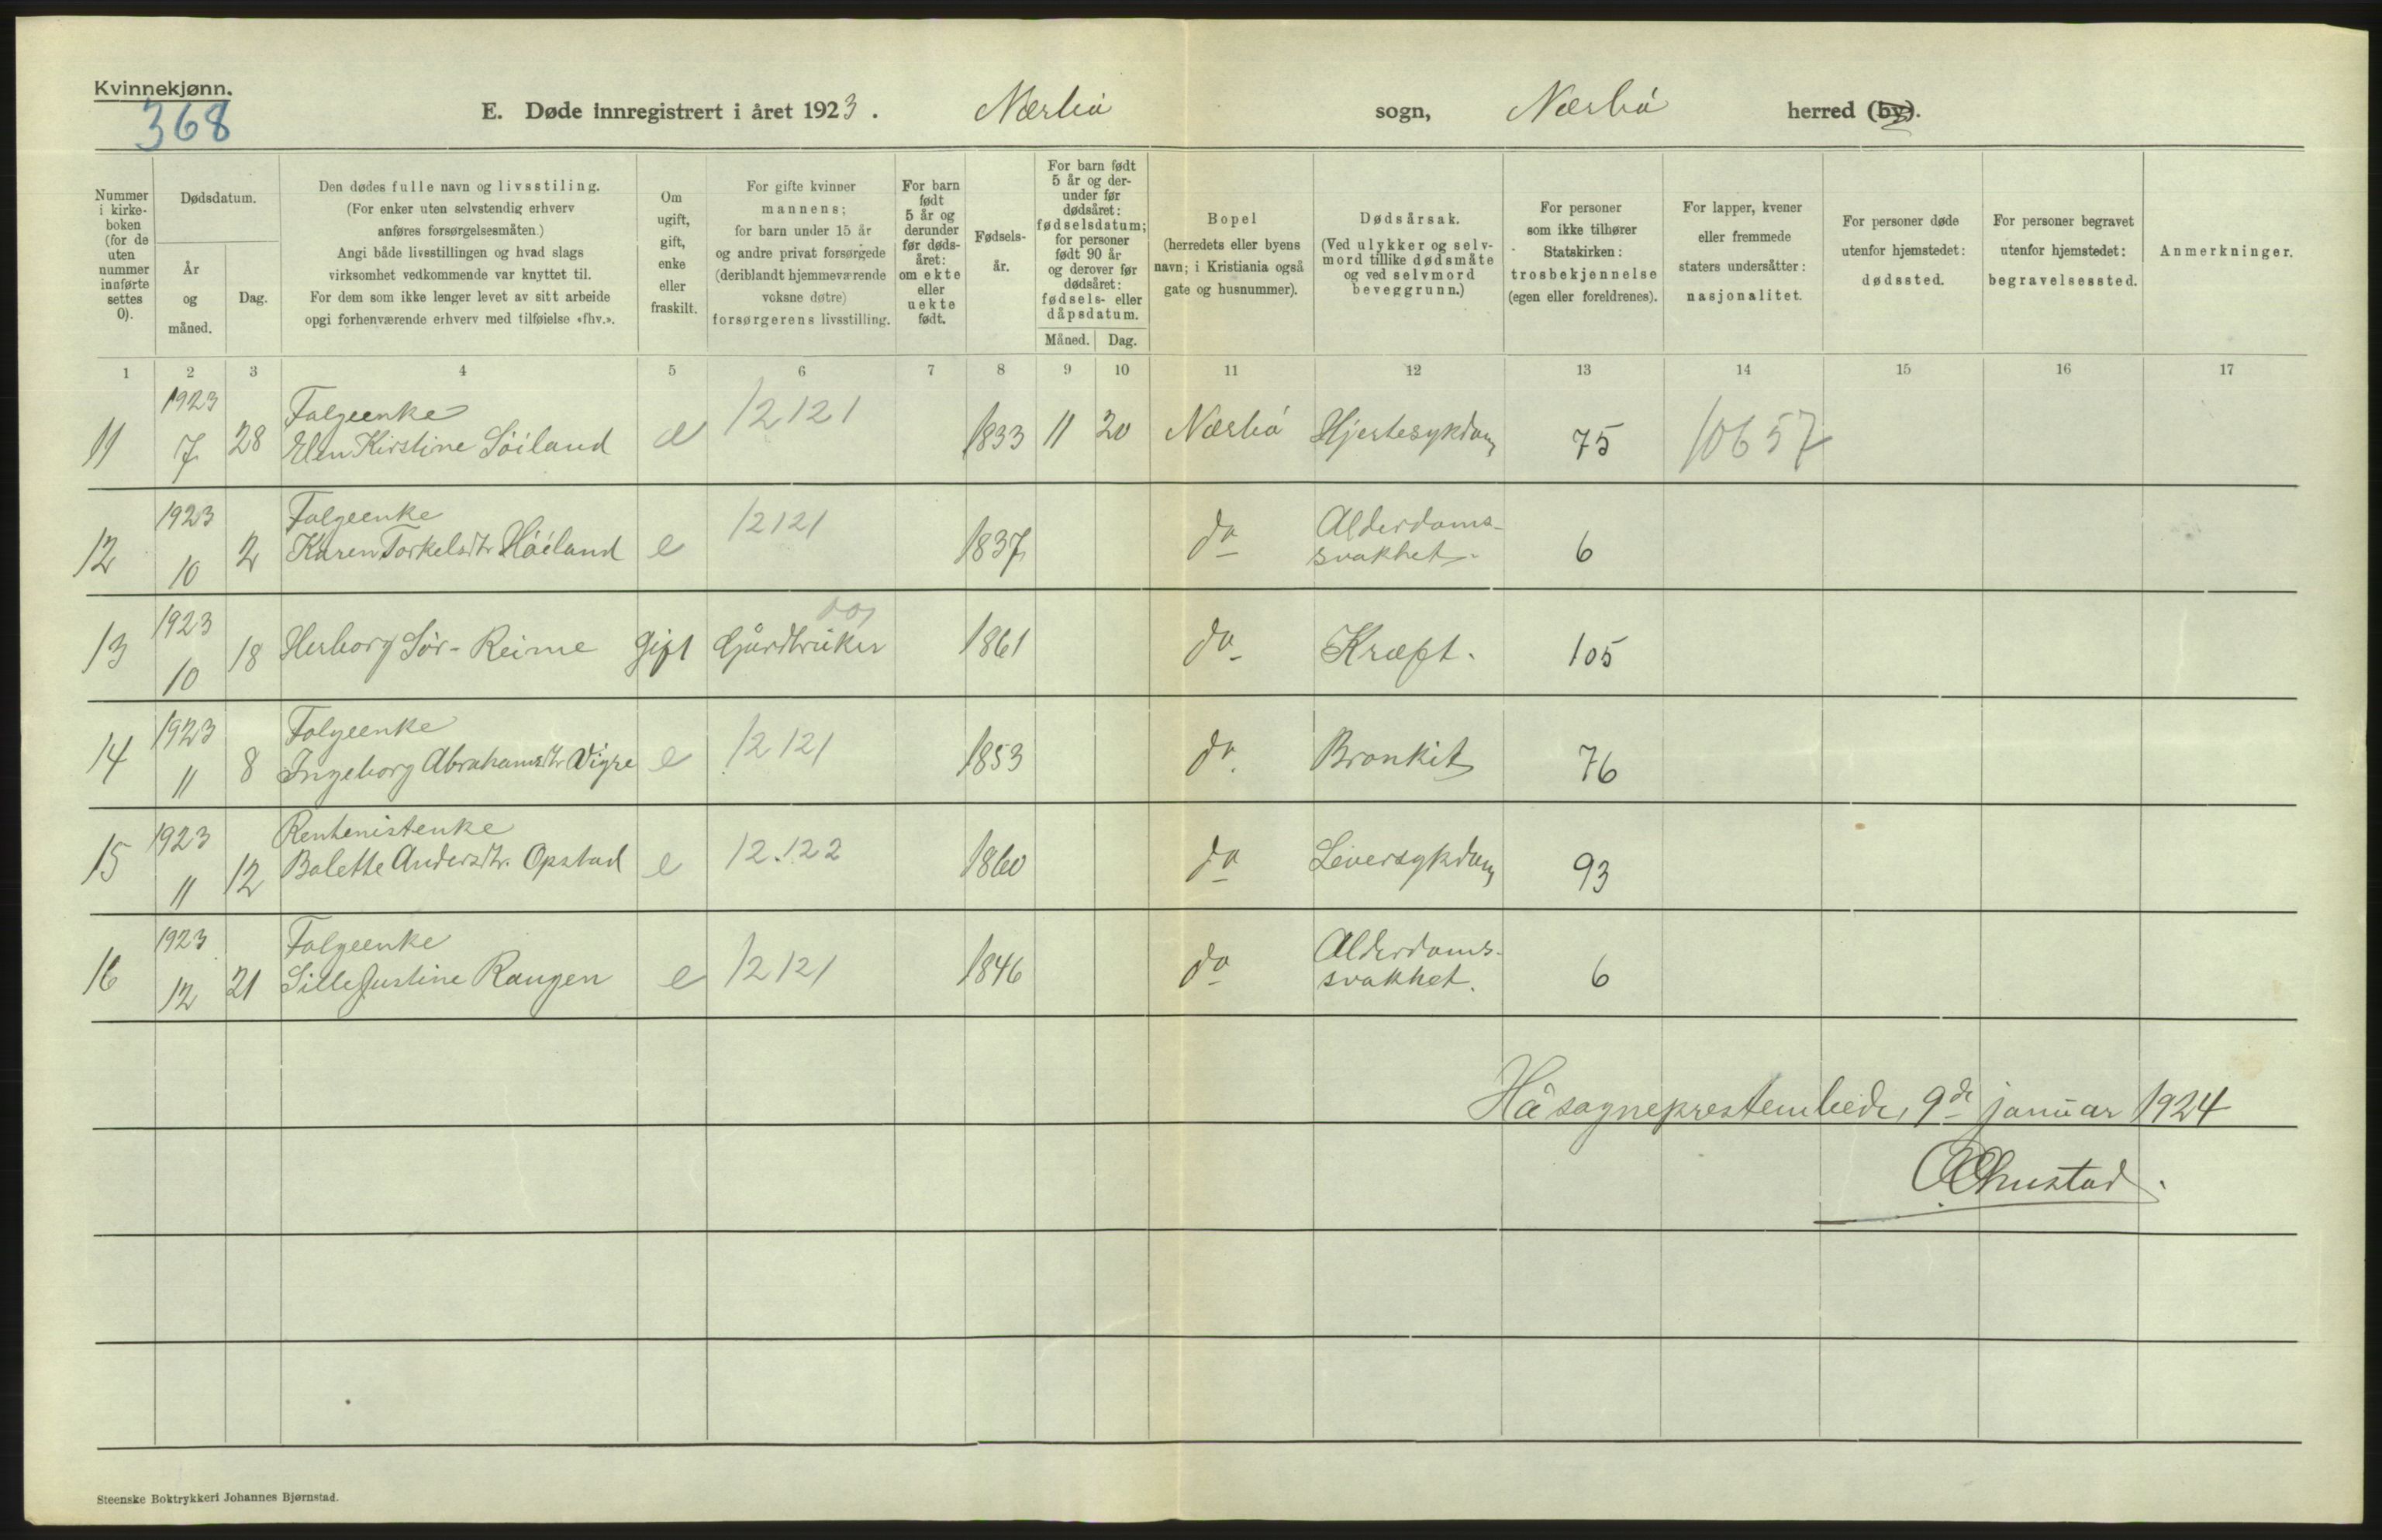 Kvinnekjønn.
368
E. Døde innregistrert i året 1923. Nærbø sogn, Nærbø herred (by).
Nummer i kirke-boken (for de uten nummer innførte settes 0).
Dødsdatum.
År og måned.
Dag.
Den dødes fulle navn og livsstiling.
(For enker uten selvstendig erhverv
anføres forsørgelsesmåten.)
Angi både livsstillingen og hvad slags
virksomhet vedkommende var knyttet til.
For dem som ikke lenger levet av sitt arbeide
opgi forhenværende erhverv med tilføielse «fhv.».
Om ugift, gift, enke eller fraskilt.
For gifte kvinner
mannens;
for barn under 15 år
og andre privat forsørgede
(deriblandt hjemmeværende
voksne døtre)
forsørgerens livsstilling.
For barn født 5 år og derunder før døds-året: om ekte eller uekte født.
Fødsels-år.
For barn født 5 år og der-under før dødsåret: fødselsdatum; for personer født 90 år og derover før dødsåret: fødsels- eller dåpsdatum.
Måned. Dag.
Bopel
(herredets eller byens
navn; i Kristiania også
gate og husnummer).
Dødsårsak.
(Ved ulykker og selv-
mord tillike dødsmåte
og ved selvmord
beveggrunn.)
For personer
som ikke tilhører
Statskirken:
trosbekjennelse
(egen eller foreldrenes).
For lapper, kvener
eller fremmede
staters undersåtter:
nasjonalitet.
For personer døde
utenfor hjemstedet:
dødssted.
For personer begravet
utenfor hjemstedet:
begravelsessted.
Anmerkninger.
1 2 3 4 5 6 7 8 9 10 11 12 13 14 15 16 17
1923 Folgeenke
11 7 28 Elen Kirstine Søiland e 12121 1833 11 20 Nærbø Hjertesykdom 75 10657
1923 Folgeenke 12121 Alderdoms-
12 10 2 Karen Torkelsdtr Høiland e 1837 do svakhet. 6
1923
13 10 18 Herborg Sør-Reime gift Gårdbruker 1861 do Kræft. 105
1923 Folgeenke
14 11 8 Ingeborg Abrahamsdtr Vigre e 12121 1853 do. Bronkit 76
1923 Rentenistenke
15 11 12 Bolette Andersdtr. Opstad e 12.122 1860 do Leversykdom 93
1923 Folgeenke Alderdoms-
16 12 21 Sille Justine Raugen e 12121 1846 do svakhet. 6
Hå sogneprestembede, 9de januar 1924
Steenske Boktrykkeri Johannes Bjørnstad.